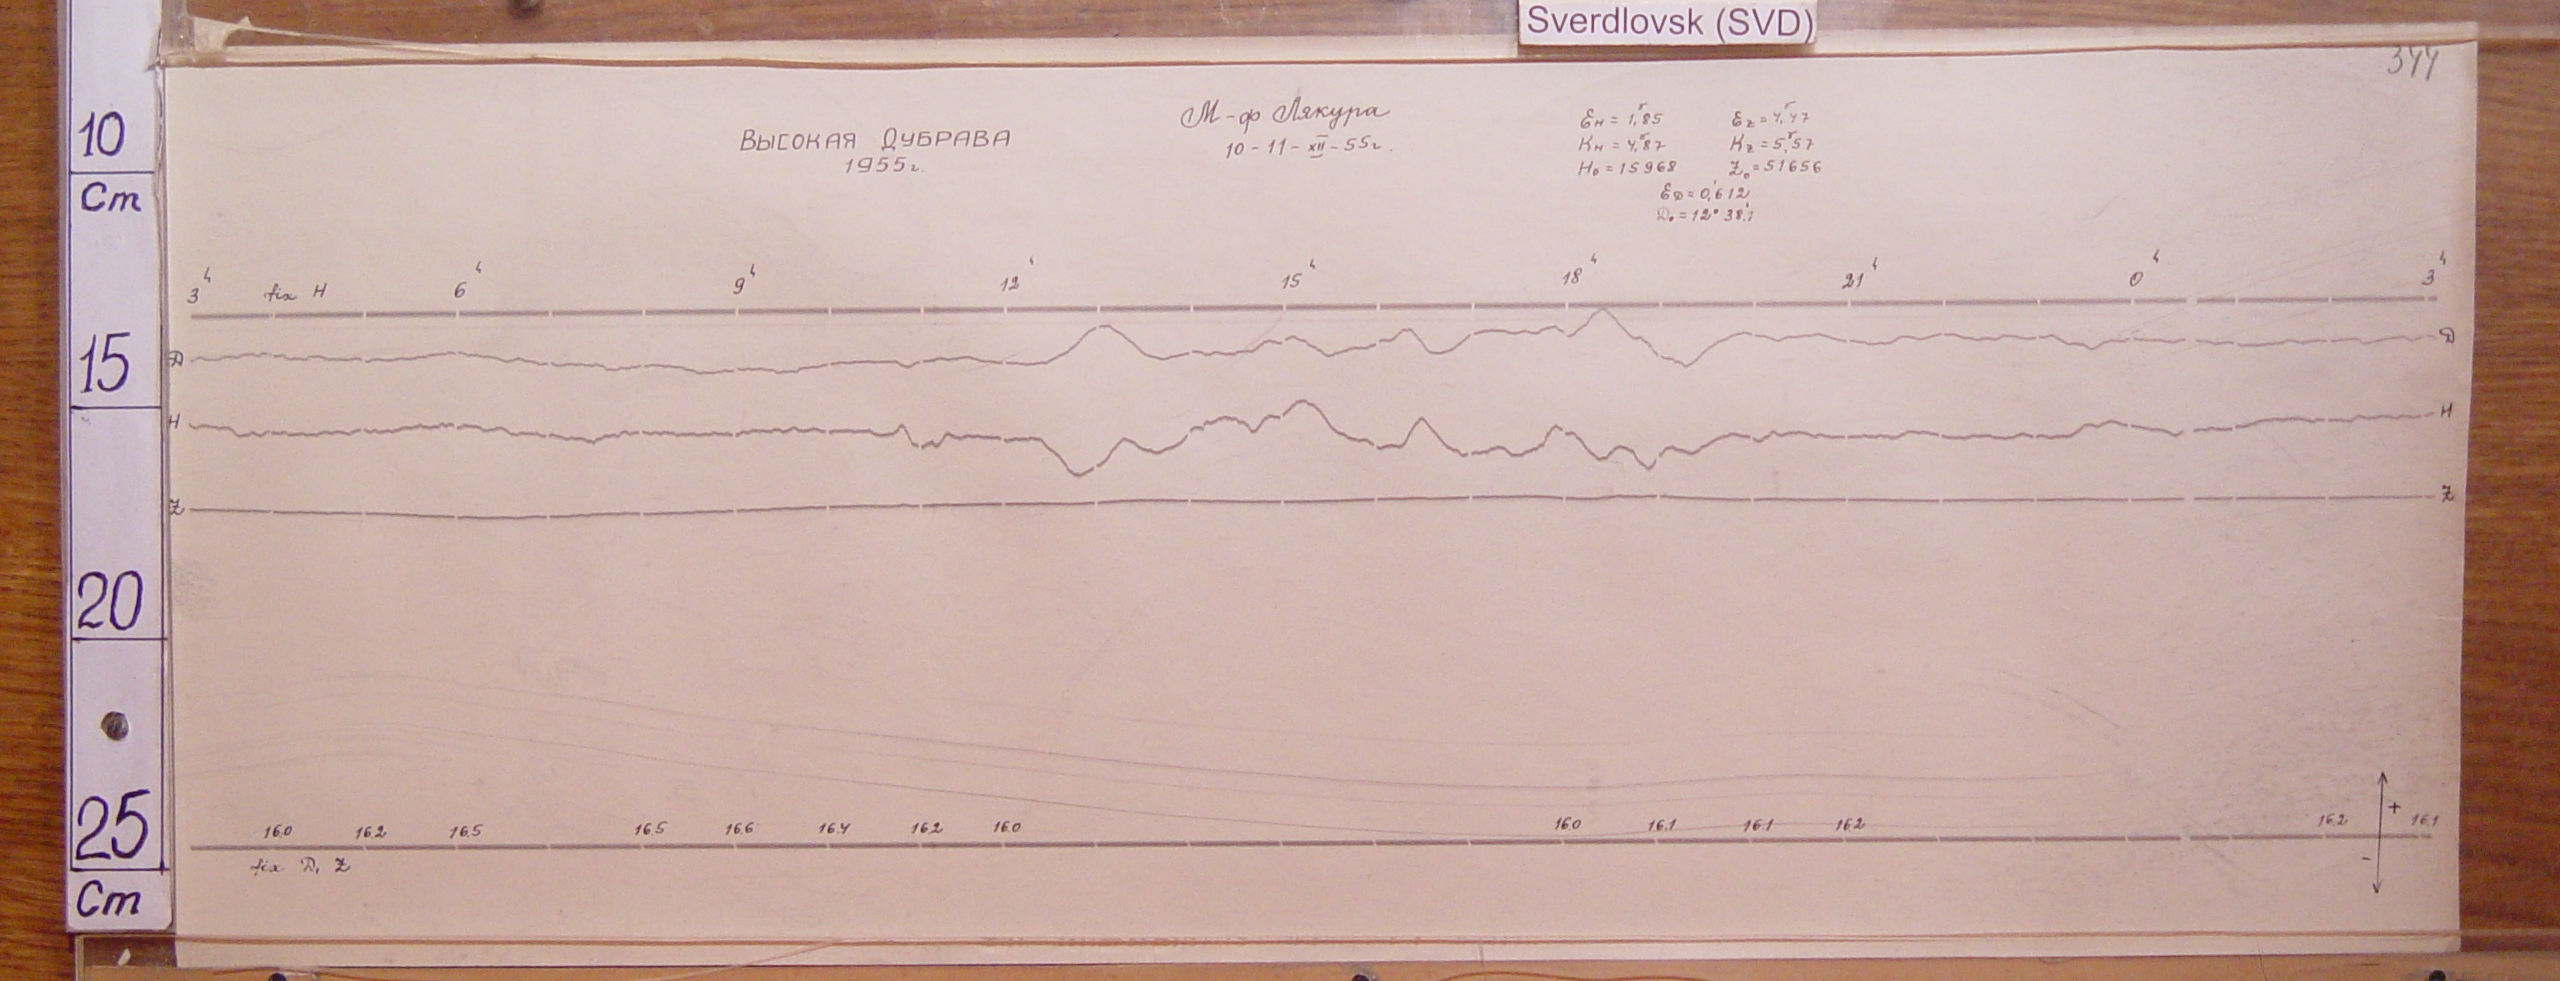 Sverdlovsk (SVD)
344
10
Cm
15
20
25
Cm
ВЫСОКАЯ ДУБРАВА
1955г.
М-ф Лякура
10-11-XII-55г.
Ɛн = 1,85 Ɛz = 4,47
Kн = 4,87 Kz = 5,57
H₀ = 15968 Z₀ = 51656
ƐD = 0,612
D₀ = 12° 38,1
3ч fix H 6ч 9ч 12ч 15ч 18ч 21ч 0ч 3ч
D D
H H
Z Z
16.0 16.2 16.5 16.5 16.6 16.4 16.2 16.0 16.0 16.1 16.1 16.2 16.2 16.1
+
-
fix D, Z